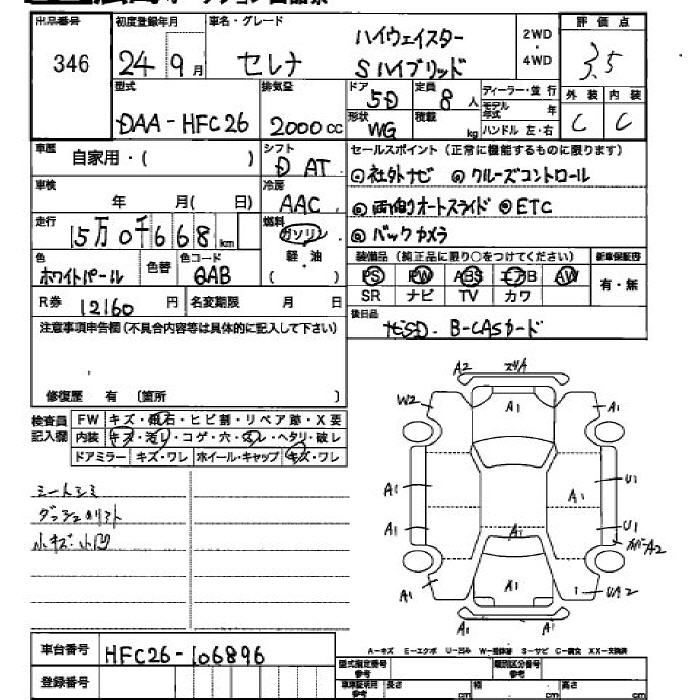 出品番号 初度登録年月 車名・グレード ハイウェイスター 2WD・4WD 評価点
346 24 9月 セレナ Sハイブリッド 3.5
型式 排気量 ドア 5D 定員 8人 ディーラー・並行 外装 内装
DAA-HFC26 2000cc 形状 WG 積載 kg モデル年式 年 C C
ハンドル 左・右
車歴 自家用・( ) シフト D AT セールスポイント(正常に機能するものに限ります)
車検 年 月( 日) 冷房 AAC ◎社外ナビ ◎クルーズコントロール
走行 15万0千668km 燃料 ガソリン 軽・油 ( ) ◎両側オートスライド ◎ETC
◎バックカメラ
色 ホワイトパール 色替 色コード QAB
装備品(純正品に限り○をつけてください) 新車保証書
PS PW ABS エアB AW 有・無
SR ナビ TV カワ
R券 12160円 名変期限 月 日
後日品 ナビSD. B-CASカード
注意事項申告欄(不具合内容等は具体的に記入して下さい)
修復歴 有 〔箇所 〕
検査員記入欄 FW キズ・飛石・ヒビ割・リペア跡・X要
内装 キズ・汚レ・コゲ・穴・スレ・ヘタリ・破レ
ドアミラー キズ・ワレ ホイール・キャップ キズ・ワレ
シートシミ
ダッシュ
小キズ・小凹
A2 スリA
W2 A1 A1
A1 A1 U1
A1 A1 U1
A2
A1 A1 UA2
A1
A-キズ E-エクボ U-凹み W-補修跡 S-サビ C-腐食 XX-交換済
車台番号 HFC26-106896
登録番号
型式指定番号 類別区分番号
車車証明用参考 長さ cm 幅 cm 高さ cm